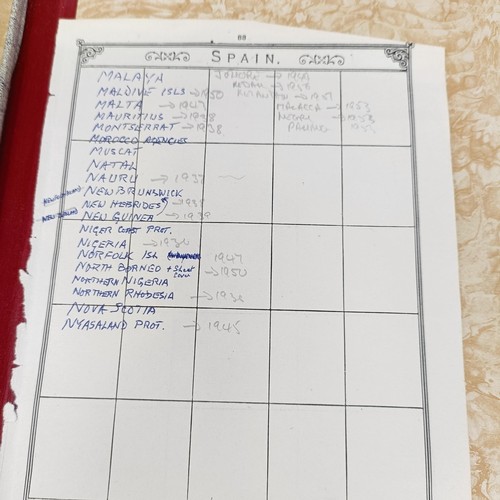 88
SPAIN.
MALAYA JOHORE → 1949
MALDIVE ISLS → 1950
MALTA → 1947 MALACCA → 1953
MAURITIUS → 1948
MONTSERRAT → 1938
MOROCCO AGENCIES
MUSCAT
NATAL
NAURU → 1937
NEW BRUNSWICK
NEWFOUNDLAND NEW HEBRIDES → 1938
NEW ZEALAND NEW GUINEA → 1939
NIGER COAST PROT.
NIGERIA → 1936
NORFOLK ISL 1947
NORTH BORNEO + Sheet → 1950
NORTHERN NIGERIA
NORTHERN RHODESIA → 1938
NOVA SCOTIA
NYASALAND PROT. → 1945